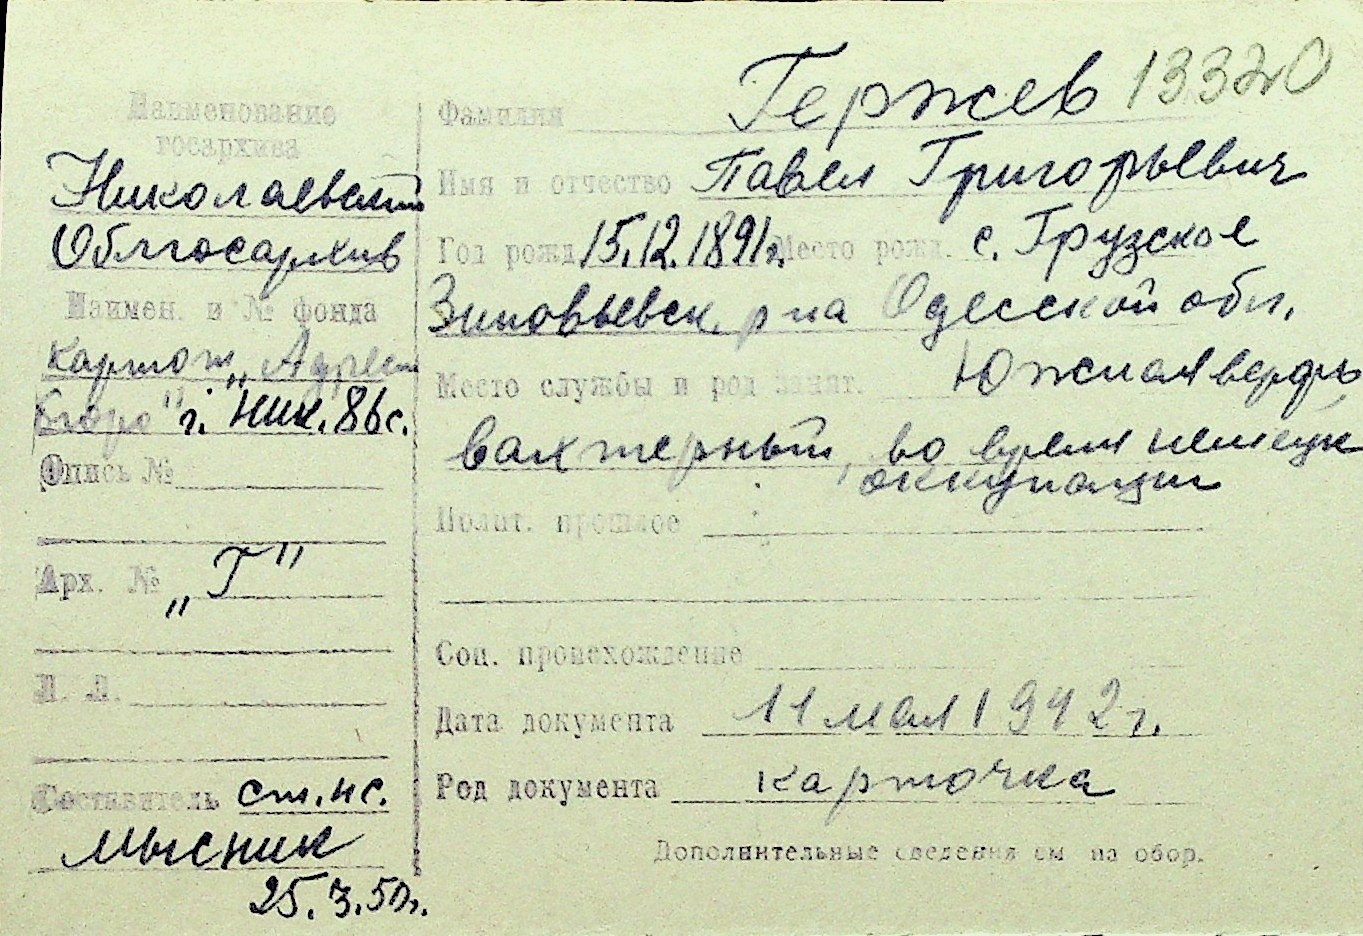 Наименование
госархива
Николаевский
Облгосархив
Наимен. и № фонда
картот. „Адресн
бюро" г. Ник. 86с.
Опись №
Арх. № „Г"
Л. Л.
Составитель ст. нс.
Мысник
25.3.50г.
13320
Фамилия Гержев
Имя и отчество Павел Григорьевич
Год рожд. 15.12.1891г. Место рожд. с. Грузское
Зиновьевск. р-на Одесской обл.
Место службы и род занят. Южная верфь
вахтерный, во время немецк
оккупации
Полит. прошлое
Соц. происхождение
Дата документа 11 мая 1942 г.
Род документа карточка
Дополнительные сведения см на обор.